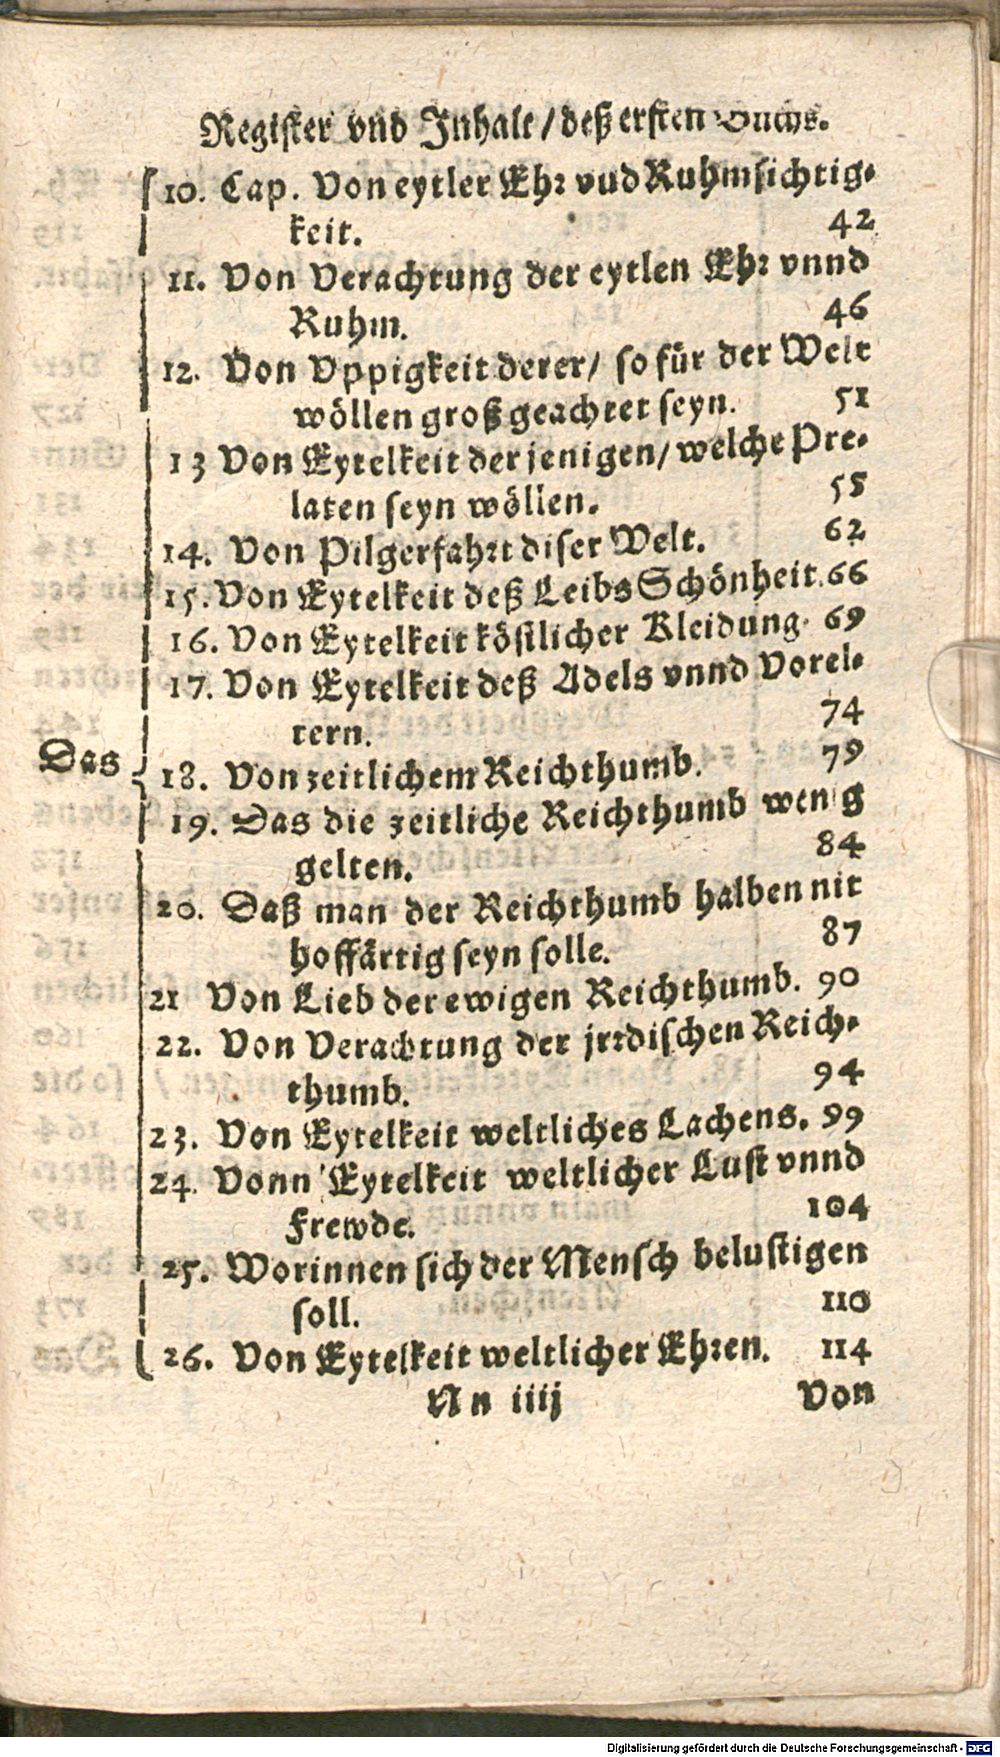 Register vnd Inhalt / deß ersten Buchs.
10. Cap. Von eytler Ehr vnd Ruhmsichtig-
keit. 42
11. Von Verachtung der eytlen Ehr vnnd
Ruhm. 46
12. Von Vppigkeit derer / so für der Welt
wöllen groß geachtet seyn. 51
13 Von Eytelkeit der jenigen / welche Pre-
laten seyn wöllen. 55
14. Von Pilgerfahrt diser Welt. 62
15. Von Eytelkeit deß Leibs Schönheit. 66
16. Von Eytelkeit köstlicher Kleidung. 69
17. Von Eytelkeit deß Adels vnnd Vorel-
tern. 74
Das 18. Von zeitlichem Reichthumb. 79
19. Das die zeitliche Reichthumb wenig
gelten. 84
20. Daß man der Reichthumb halben nit
hoffärtig seyn solle. 87
21 Von Lieb der ewigen Reichthumb. 90
22. Von Verachtung der jrrdischen Reich-
thumb. 94
23. Von Eytelkeit weltliches Lachens. 99
24. Vonn Eytelkeit weltlicher Lust vnnd
Frewde. 104
25. Worinnen sich der Mensch belustigen
soll. 110
26. Von Eytelkeit weltlicher Ehren. 114
Nn iiij Von
Digitalisierung gefördert durch die Deutsche Forschungsgemeinschaft - DFG